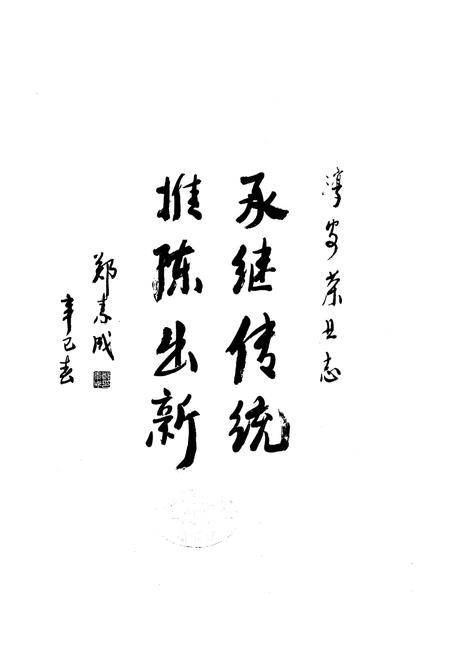 淳安茶志
承继传统
推陈出新
郑素成
辛巳春